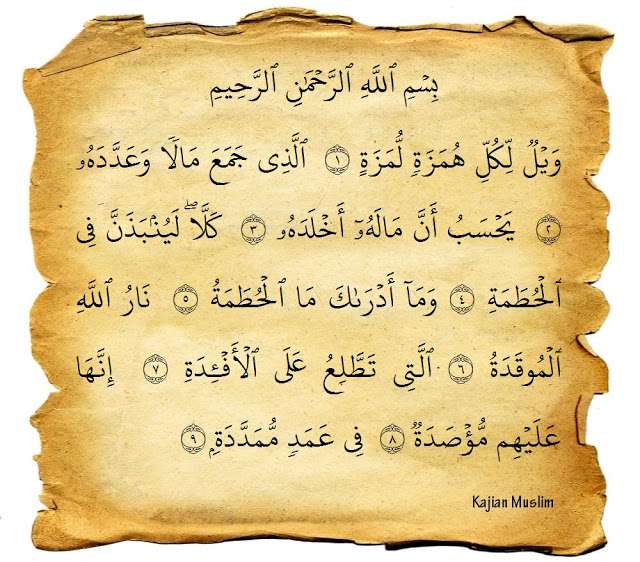 بِسْمِ ٱللَّهِ ٱلرَّحْمَٰنِ ٱلرَّحِيمِ
وَيْلٌ لِّكُلِّ هُمَزَةٍ لُّمَزَةٍ ١ ٱلَّذِى جَمَعَ مَالًا وَعَدَّدَهُۥ
٢ يَحْسَبُ أَنَّ مَالَهُۥٓ أَخْلَدَهُۥ ٣ كَلَّا ۖ لَيُنۢبَذَنَّ فِى
ٱلْحُطَمَةِ ٤ وَمَآ أَدْرَىٰكَ مَا ٱلْحُطَمَةُ ٥ نَارُ ٱللَّهِ
ٱلْمُوقَدَةُ ٦ ٱلَّتِى تَطَّلِعُ عَلَى ٱلْأَفْـِٔدَةِ ٧ إِنَّهَا
عَلَيْهِم مُّؤْصَدَةٌ ٨ فِى عَمَدٍ مُّمَدَّدَةٍۭ ٩
Kajian Muslim